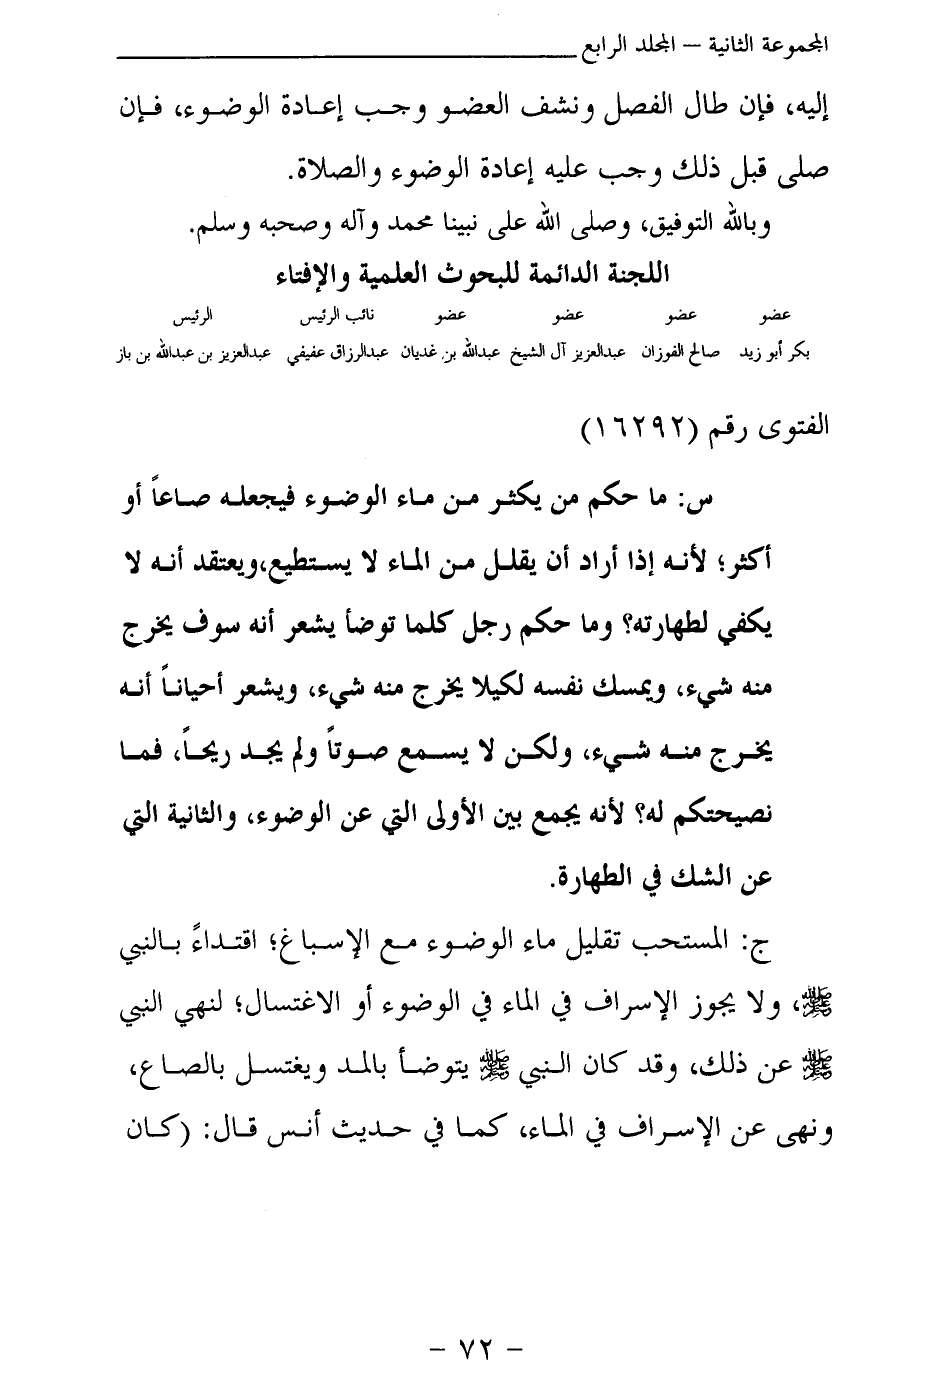 المجموعة الثانية – المجلد الرابع
إليه، فإن طال الفصل ونشف العضو وجب إعادة الوضوء، فإن
صلى قبل ذلك وجب عليه إعادة الوضوء والصلاة.
وبالله التوفيق، وصلى الله على نبينا محمد وآله وصحبه وسلم.
اللجنة الدائمة للبحوث العلمية والإفتاء
عضو عضو عضو عضو نائب الرئيس الرئيس
بكر أبو زيد صالح الفوزان عبدالعزيز آل الشيخ عبدالله بن غديان عبدالرزاق عفيفي عبدالعزيز بن عبدالله بن باز
الفتوى رقم (١٦٢٩٢)
س: ما حكم من يكثر من ماء الوضوء فيجعله صاعاً أو
أكثر؛ لأنه إذا أراد أن يقلل من الماء لا يستطيع،ويعتقد أنه لا
يكفي لطهارته؟ وما حكم رجل كلما توضأ يشعر أنه سوف يخرج
منه شيء، ويمسك نفسه لكيلا يخرج منه شيء، ويشعر أحياناً أنه
يخرج منه شيء، ولكن لا يسمع صوتاً ولم يجد ريحاً، فما
نصيحتكم له؟ لأنه يجمع بين الأولى التي عن الوضوء، والثانية التي
عن الشك في الطهارة.
ج: المستحب تقليل ماء الوضوء مع الإسباغ؛ اقتداءً بالنبي
ﷺ، ولا يجوز الإسراف في الماء في الوضوء أو الاغتسال؛ لنهي النبي
ﷺ عن ذلك، وقد كان النبي ﷺ يتوضأ بالمد ويغتسل بالصاع،
ونهى عن الإسراف في الماء، كما في حديث أنس قال: (كان
- ٧٢ -